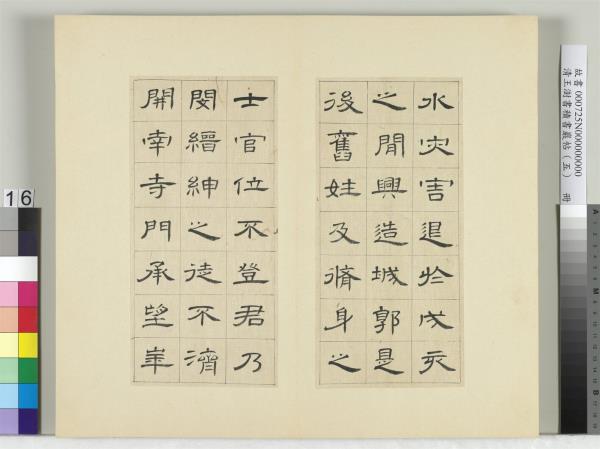 水灾害退於戌亥
之閒興造城郭是
後舊姓及脩身之
士官位不登君乃
閔縉紳之徒不濟
開南寺門承望華
故書 000725N00000000
清王澍書積書巖帖（五） 冊
16
A
M
B